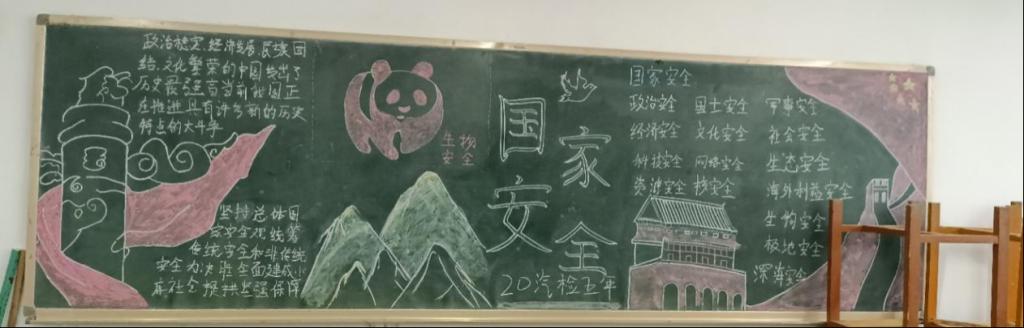 政治稳定、经济发展、民族团
结、文化繁荣的中国
在推进具有许多新的历史
特点的大斗争
坚持总体国
传统安全和非传统
安全为决胜全面建成小
康社会提供坚强保障
生物
安全
国家安全
20汽检五年
国家安全
政治安全 国土安全 军事安全
经济安全 文化安全 社会安全
科技安全 网络安全 生态安全
资源安全 核安全 海外利益安全
生物安全
极地安全
深海安全